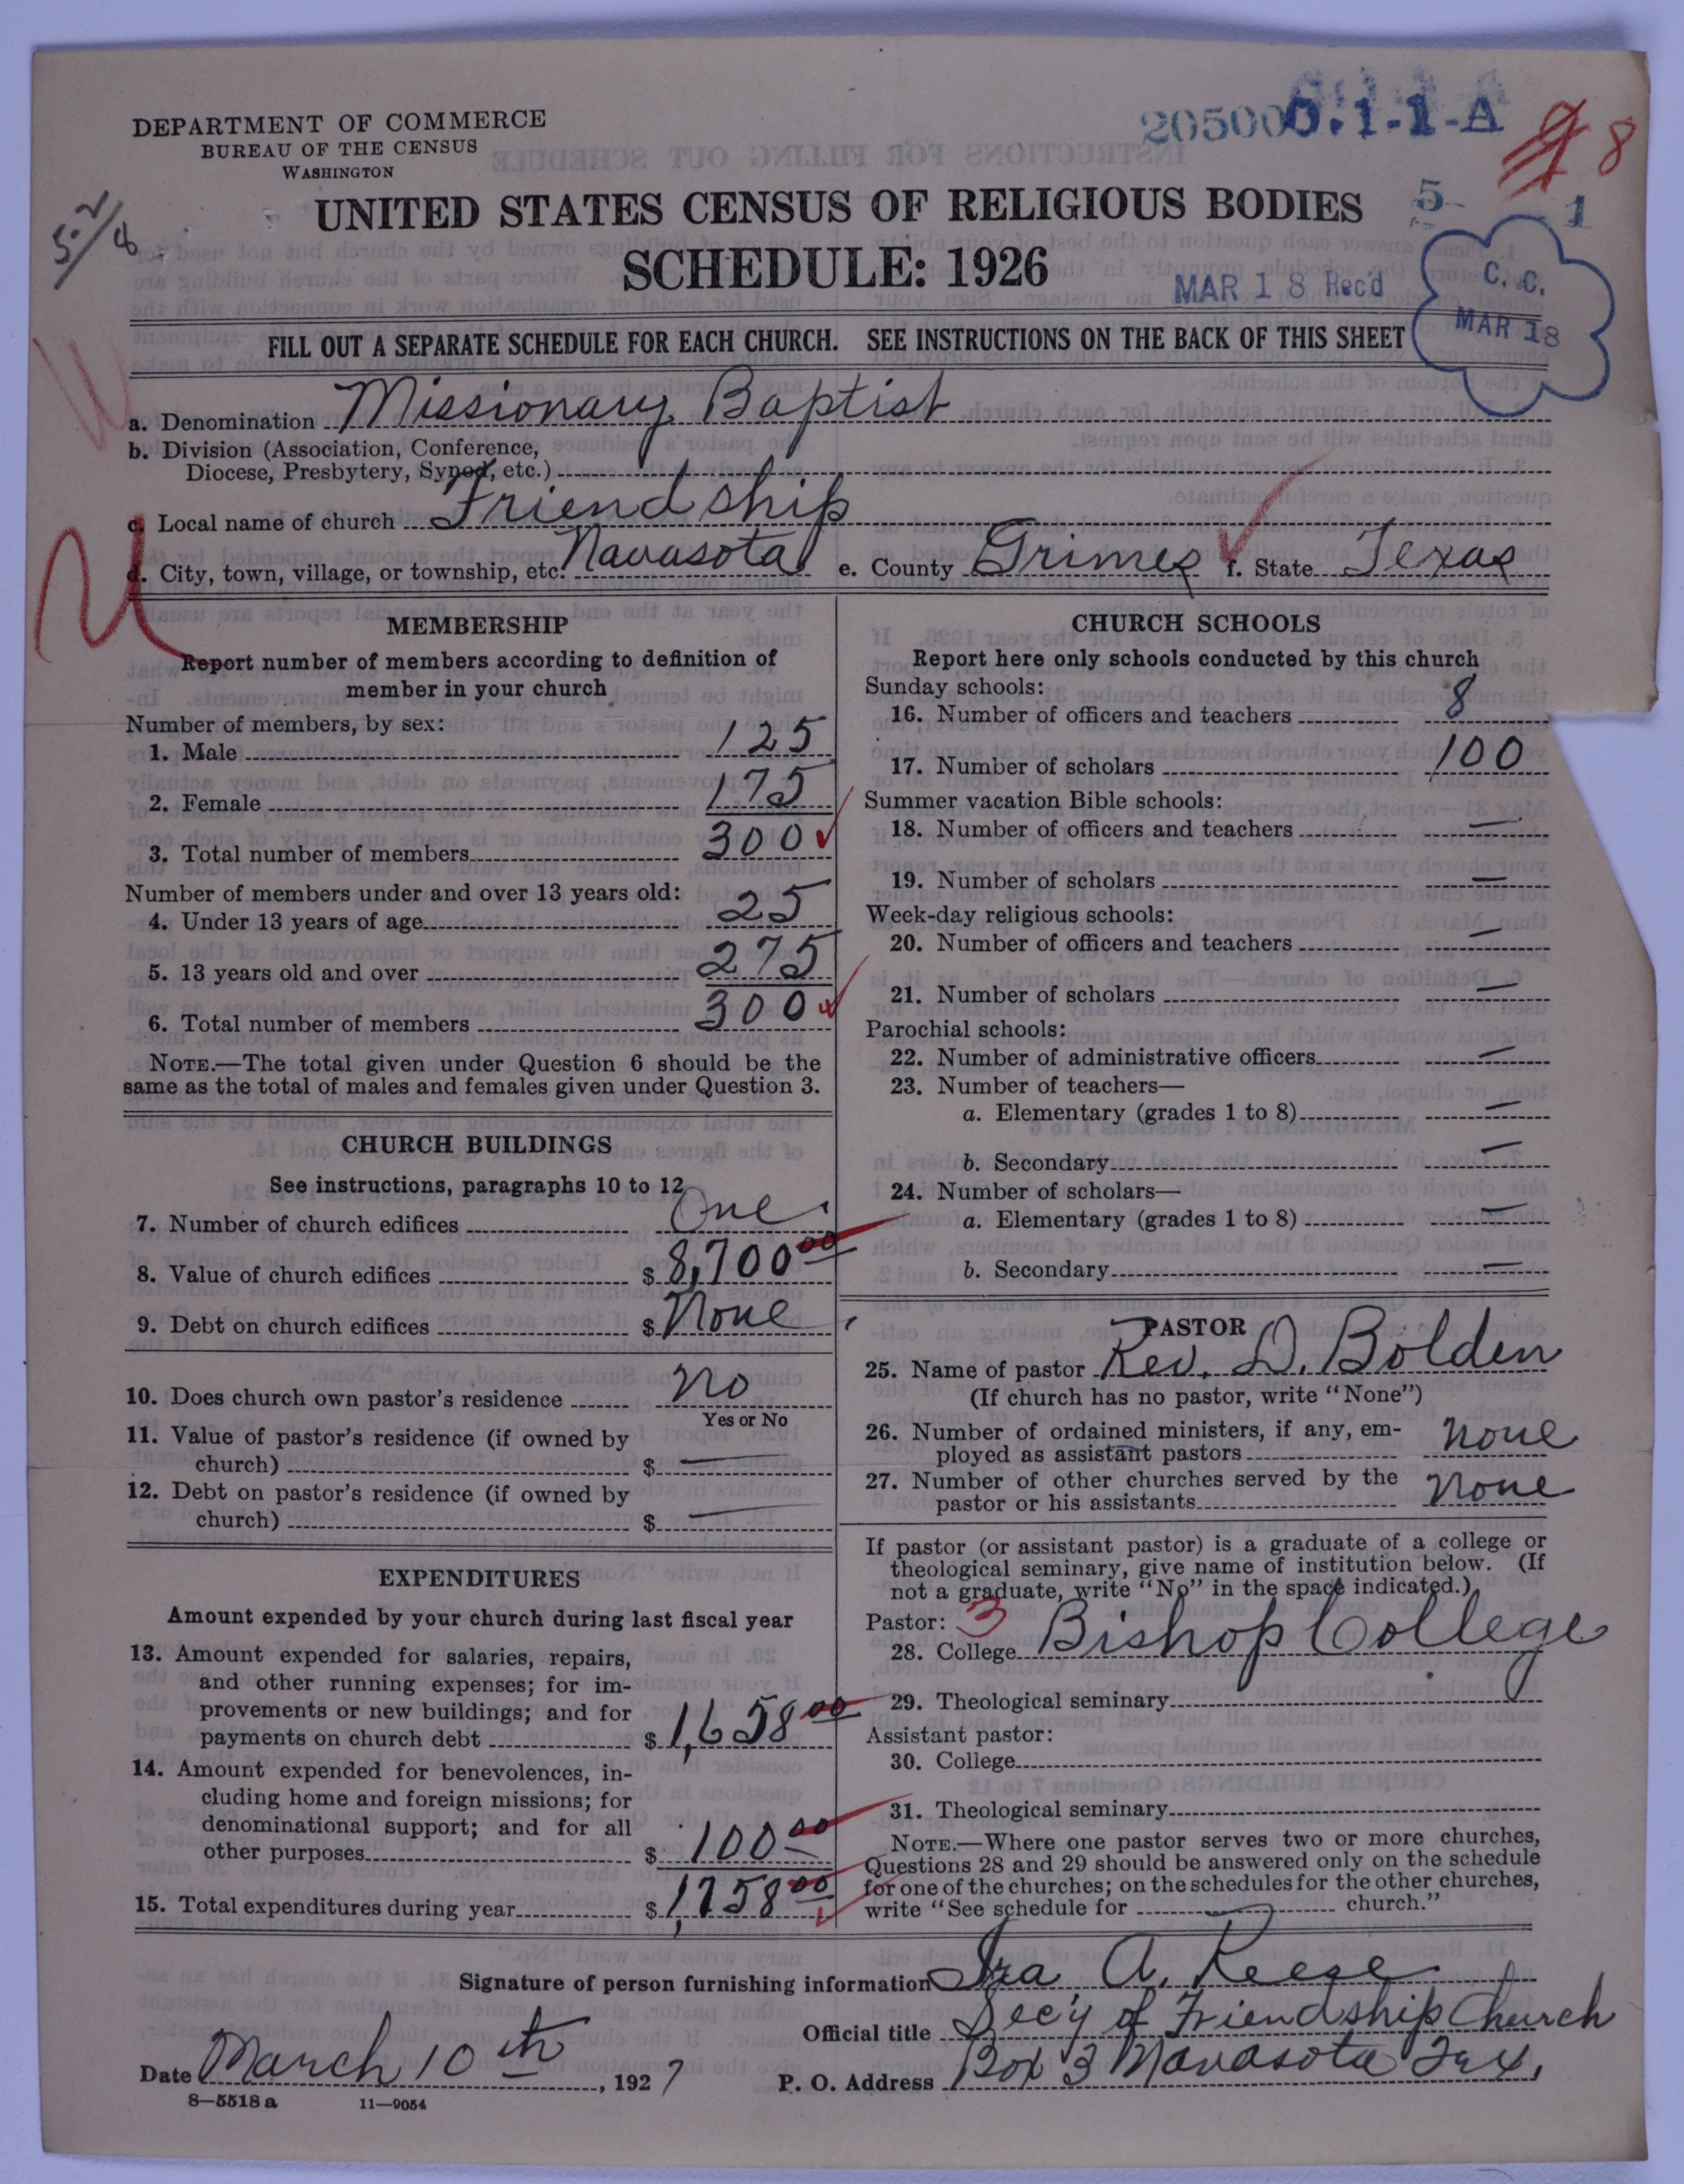 DEPARTMENT OF COMMERCE
BUREAU OF THE CENSUS
WASHINGTON
205000.1.1-A
8
5-2/8
UNITED STATES CENSUS OF RELIGIOUS BODIES
5 1
SCHEDULE: 1926
MAR 18 Rec'd
C. C.
MAR 18
FILL OUT A SEPARATE SCHEDULE FOR EACH CHURCH. SEE INSTRUCTIONS ON THE BACK OF THIS SHEET
a. Denomination Missionary Baptist
b. Division (Association, Conference,
Diocese, Presbytery, Synod, etc.)
c. Local name of church Friendship
d. City, town, village, or township, etc. Navasota e. County Grimes f. State Texas
MEMBERSHIP
Report number of members according to definition of
member in your church
Number of members, by sex:
1. Male 125
2. Female 175
3. Total number of members 300
Number of members under and over 13 years old:
4. Under 13 years of age 25
5. 13 years old and over 275
6. Total number of members 300
NOTE.—The total given under Question 6 should be the
same as the total of males and females given under Question 3.
CHURCH BUILDINGS
See instructions, paragraphs 10 to 12
7. Number of church edifices One
8. Value of church edifices $ 8,700 00
9. Debt on church edifices $ None
10. Does church own pastor's residence No
Yes or No
11. Value of pastor's residence (if owned by
church) $ —
12. Debt on pastor's residence (if owned by
church) $ —
EXPENDITURES
Amount expended by your church during last fiscal year
13. Amount expended for salaries, repairs,
and other running expenses; for im-
provements or new buildings; and for
payments on church debt $ 1,658 00
14. Amount expended for benevolences, in-
cluding home and foreign missions; for
denominational support; and for all
other purposes $ 100 00
15. Total expenditures during year $ 1,758 00
CHURCH SCHOOLS
Report here only schools conducted by this church
Sunday schools:
16. Number of officers and teachers 8
17. Number of scholars 100
Summer vacation Bible schools:
18. Number of officers and teachers —
19. Number of scholars —
Week-day religious schools:
20. Number of officers and teachers —
21. Number of scholars —
Parochial schools:
22. Number of administrative officers —
23. Number of teachers—
a. Elementary (grades 1 to 8) —
b. Secondary —
24. Number of scholars—
a. Elementary (grades 1 to 8) —
b. Secondary —
PASTOR
25. Name of pastor Rev. D. Bolden
(If church has no pastor, write "None")
26. Number of ordained ministers, if any, em-
ployed as assistant pastors None
27. Number of other churches served by the
pastor or his assistants None
If pastor (or assistant pastor) is a graduate of a college or
theological seminary, give name of institution below. (If
not a graduate, write "No" in the space indicated.)
Pastor: 3
28. College Bishop College
29. Theological seminary
Assistant pastor:
30. College
31. Theological seminary
NOTE.—Where one pastor serves two or more churches,
Questions 28 and 29 should be answered only on the schedule
for one of the churches; on the schedules for the other churches,
write "See schedule for — church."
Signature of person furnishing information Ira A. Reese
Official title Sec'y of Friendship Church
Date March 10th, 1927 P. O. Address Box 3 Navasota Tex.
8—5518 a 11—9054